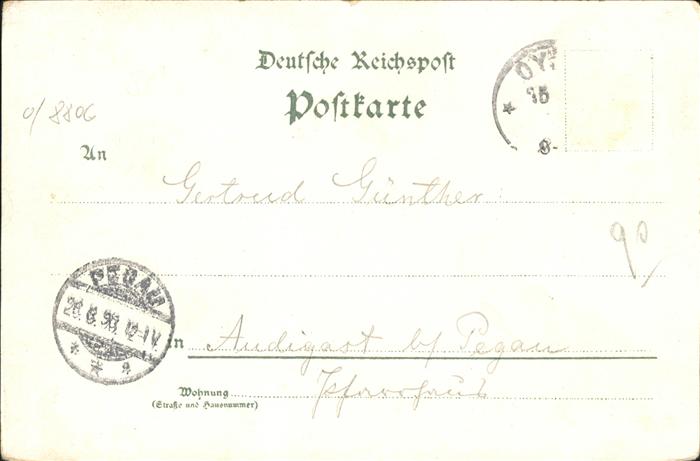 Deutsche Reichspost
Postkarte
OY
15
8-
0/8806
An
Gertrud Günther
90/
PEGAU
26.8.98. 12-1V.
* * a
in Audigast b/ Pegau
Wohnung Pfarrhaus
(Straße und Hausnummer)